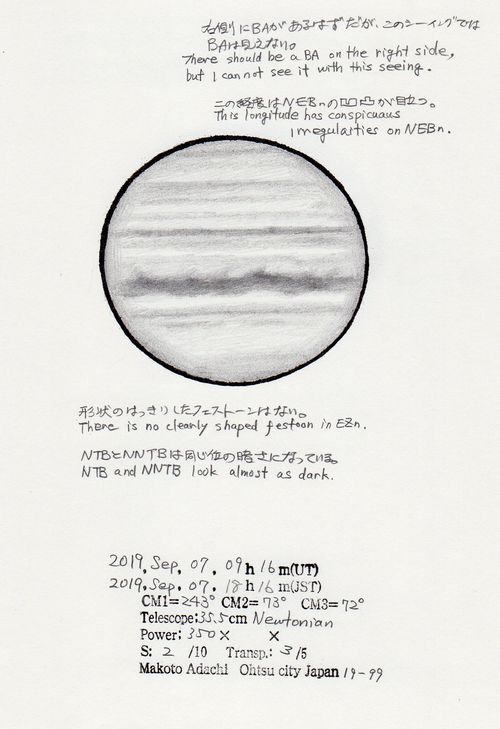 右側にBAがあるはずだが、このシーイングでは
BAは見えない。
There should be a BA on the right side,
but I cannot see it with this seeing.
この経度はNEBnの凹凸が目立つ。
This longitude has conspicuaus
irregularties on NEBn.
形状のはっきりしたフェストーンはない。
There is no clearly shaped festoon in EZn.
NTBとNNTBは同じ位の暗さになっている。
NTB and NNTB look almost as dark.
2019, Sep, 07, 09h 16m(UT)
2019, Sep, 07, 18h 16m(JST)
CM1=243° CM2=73° CM3=72°
Telescope:35.5cm Newtonian
Power: 350× ×
S: 2 /10 Transp.: 3/5
Makoto Adachi Ohtsu city Japan 19-99